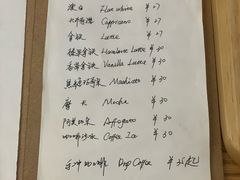 澳白 Flat white ¥27
卡布奇诺 Cappuccino ¥27
拿铁 Latte ¥27
榛果拿铁 Hazelnut Latte ¥30
香草拿铁 Vanilla Latte ¥30
焦糖玛奇朵 Macchiato ¥30
摩卡 Mocha ¥30
阿芙佳朵 Affogato ¥30
咖啡沙冰 Coffee Ice ¥30
手冲咖啡 Drip Coffee ¥35起